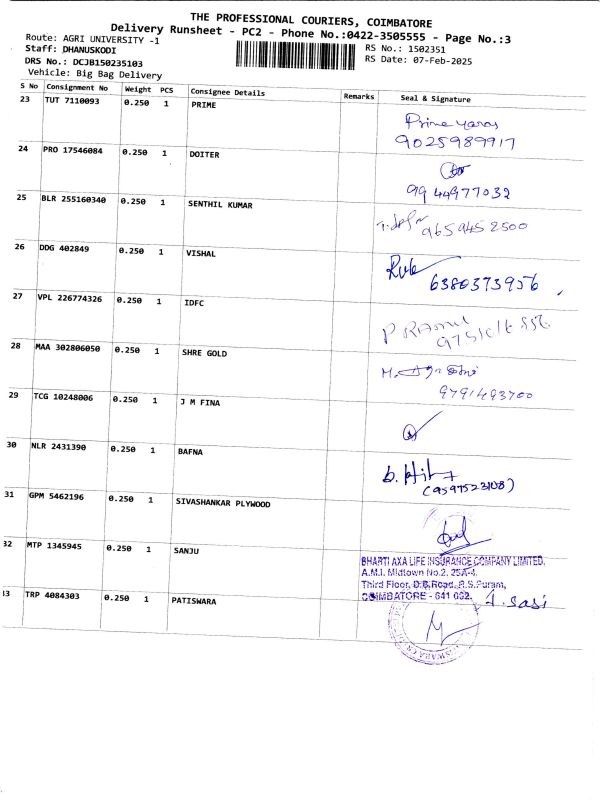 THE PROFESSIONAL COURIERS, COIMBATORE
Delivery Runsheet - PC2 - Phone No.:0422-3505555 - Page No.:3
Route: AGRI UNIVERSITY -1
RS No.: 1502351
Staff: DHANUSKODI
RS Date: 07-Feb-2025
DRS No.: DCJB150235103
Vehicle: Big Bag Delivery
S No Consignment No Weight PCS Consignee Details Remarks Seal & Signature
23 TUT 7110093 0.250 1 PRIME
Prime
9025989917
24 PRO 17546084 0.250 1 DOITER
9944977032
25 BLR 255160340 0.250 1 SENTHIL KUMAR
9659452500
26 DDG 402849 0.250 1 VISHAL
6380373956
27 VPL 226774326 0.250 1 IDFC
28 MAA 302806050 0.250 1 SHRE GOLD
9791493700
29 TCG 10248006 0.250 1 J M FINA
30 NLR 2431390 0.250 1 BAFNA
(9597523108)
31 GPM 5462196 0.250 1 SIVASHANKAR PLYWOOD
32 MTP 1345945 0.250 1 SANJU
BHARTI AXA LIFE INSURANCE COMPANY LIMITED,
A.M.I. Midtown No.2, 25A-4,
Third Floor, D.B.Road, R.S.Puram,
COIMBATORE - 641 002.
J. Sasi
33 TRP 4084303 0.250 1 PATISWARA